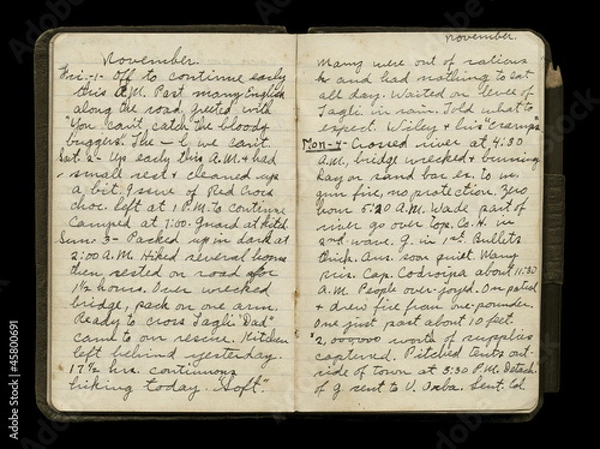 November.
Fri.-1- Off to continue early
this A.M. Past many English
along the road, greeted with
"You can't catch the bloody
buggers." The — l, we can't.
Sat. 2- Up early this A.M. & had
small rest & cleaned up
a bit. Issue of Red Cross
choc. left at 1 P.M. to continue
Camped at 7:00. Guard at Kitch.
Sun. 3- Packed up in dark at
2:00 A.M. Hiked several hours
then rested on road for
1½ hours. Over wrecked
bridge, pack on one arm.
Ready to cross Tagli. "Dad"
came to our rescue. Kitchen
left behind yesterday.
17½ hrs. continuous
hiking today. "Soft".
November.
Many were out of rations
and had nothing to eat
all day. Waited on levee of
Tagli. in rain. Told what to
expect. Wiley & his "cramps"
Mon-4- Crossed river at 4:30
A.M., bridge wrecked & burning
Lay on sand bar ex. to m.
gun fire, no protection. Zero
hour 5:20 A.M. Wade part of
river go over top. Co. H. in
2nd wave. G. in 1st. Bullets
thick. Aus. soon quiet. Many
pris. Cap. Codroipo about 11:30
A.M. People over-joyed. On patrol
& drew fire from one-pounder.
One just past about 10 feet.
2,000,000 worth of supplies
captured. Pitched tents out-
side of town at 3:30 P.M. Detach.
of G sent to V. Orba. Sent. Col.
Adobe Stock
#45800691